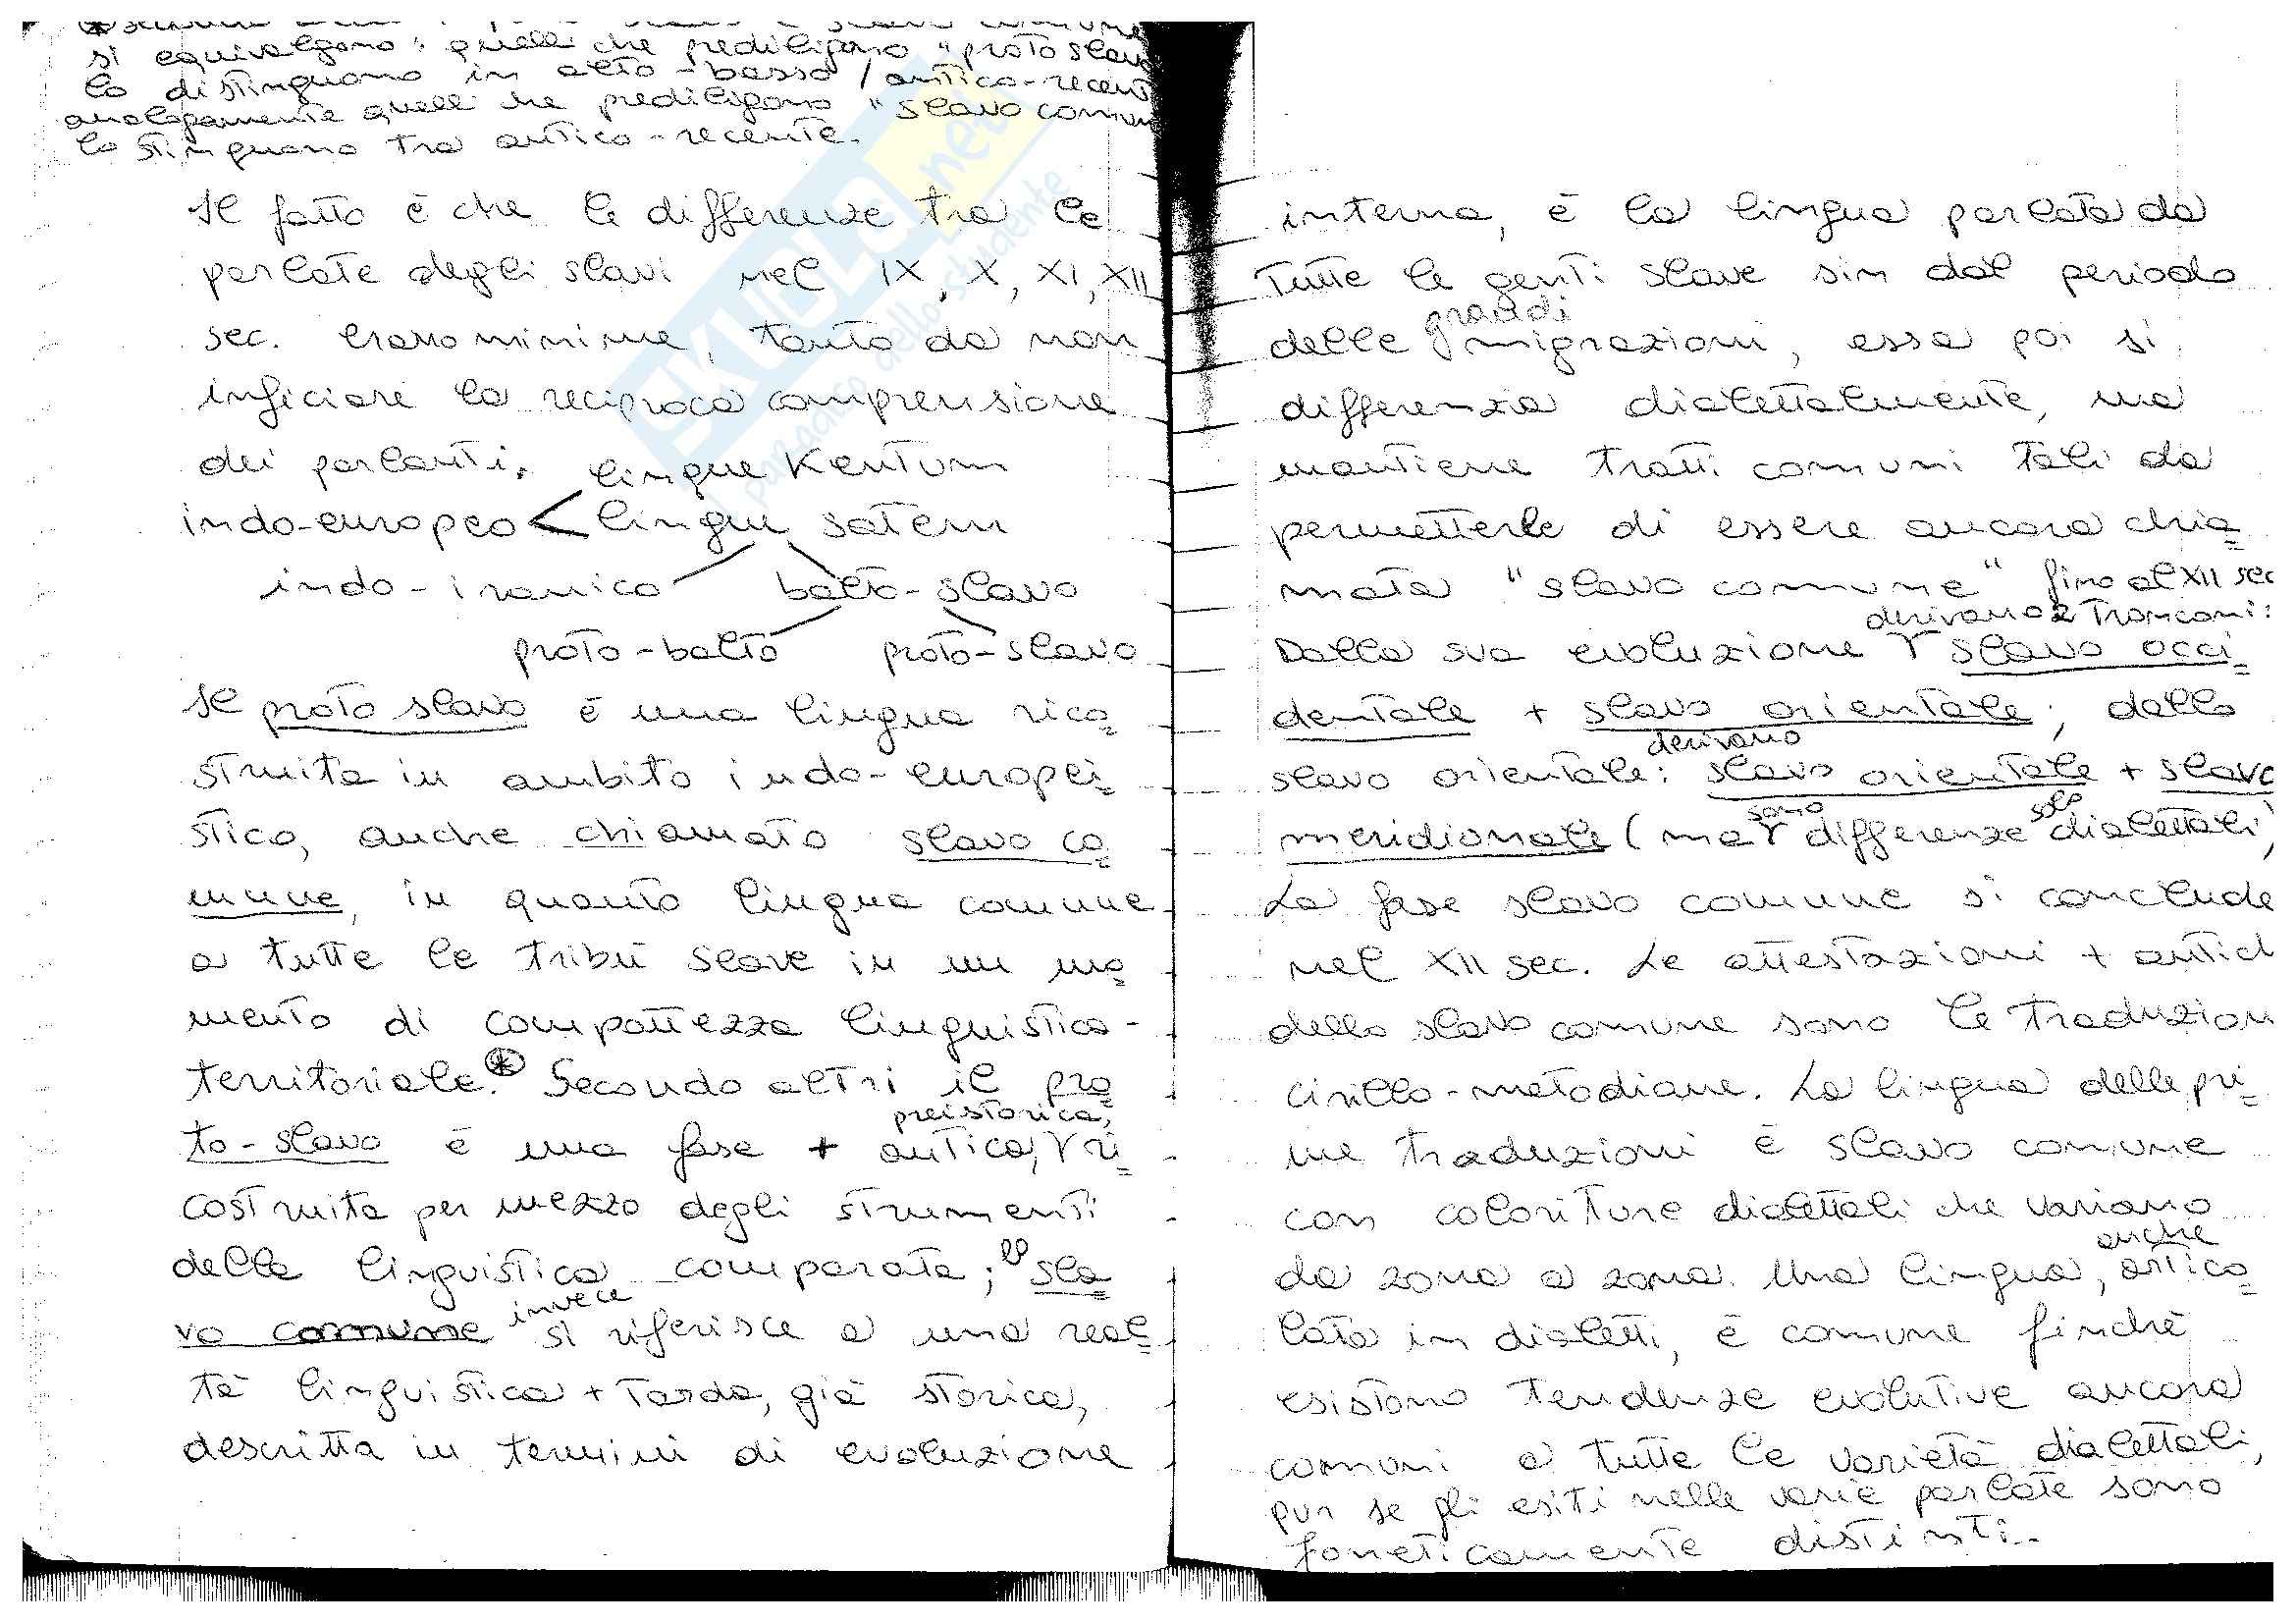 si equivalgono: quelli che prediligono "proto slavo
lo distinguono in alto-basso / antico-recent
analogamente quelli che prediligono "slavo comun
lo stinguono tra antico-recente.
Il fatto è che le differenze tra le
parlate degli slavi nel IX, X, XI, XII
sec. erano minime, tanto da non
inficiare la reciproca comprensione
dei parlanti.
lingue Kentum
indo-europeo < lingue satem
indo-iranico balto-slavo
proto-balto proto-slavo
Il proto slavo è una lingua rico=
struita in ambito indo-europei=
stico, anche chiamato slavo co=
mune, in quanto lingua comune
a tutte le tribù slave in un mo=
mento di compattezza linguistico-
territoriale.* Secondo altri il pro=
preistorica,
to-slavo è una fase + antica, ri=
costruita per mezzo degli strumenti
della linguistica comparata; lo sla=
invece
vo comune si riferisce a una real=
tà linguistica + tarda, già storica,
descritta in termini di evoluzione
interna, è la lingua parlata da
tutte le genti slave sin dal periodo
grandi
delle migrazioni, essa poi si
differenzia dialettalmente, ma
mantiene tratti comuni tali da
permetterle di essere ancora chia=
mata "slavo comune" fino al XII sec
derivano 2 tronconi:
Dalla sua evoluzione slavo occi=
dentale + slavo orientale; dallo
derivano
slavo orientale: slavo orientale + slavo
sono solo
meridionale (ma differenze dialettali)
La fase slavo comune si conclude
nel XII sec. Le attestazioni + antich
dello slavo comune sono le traduzion
cirillo-metodiane. La lingua delle pri=
me traduzioni è slavo comune
con coloriture dialettali che variano
anche
da zona a zona. Una lingua, artico=
lata in dialetti, è comune finchè
esistono tendenze evolutive ancora
comuni a tutte le varietà dialettali,
pur se gli esiti nelle varie parlate sono
foneticamente distinti.
SKUOLA.net
il paradiso dello studente